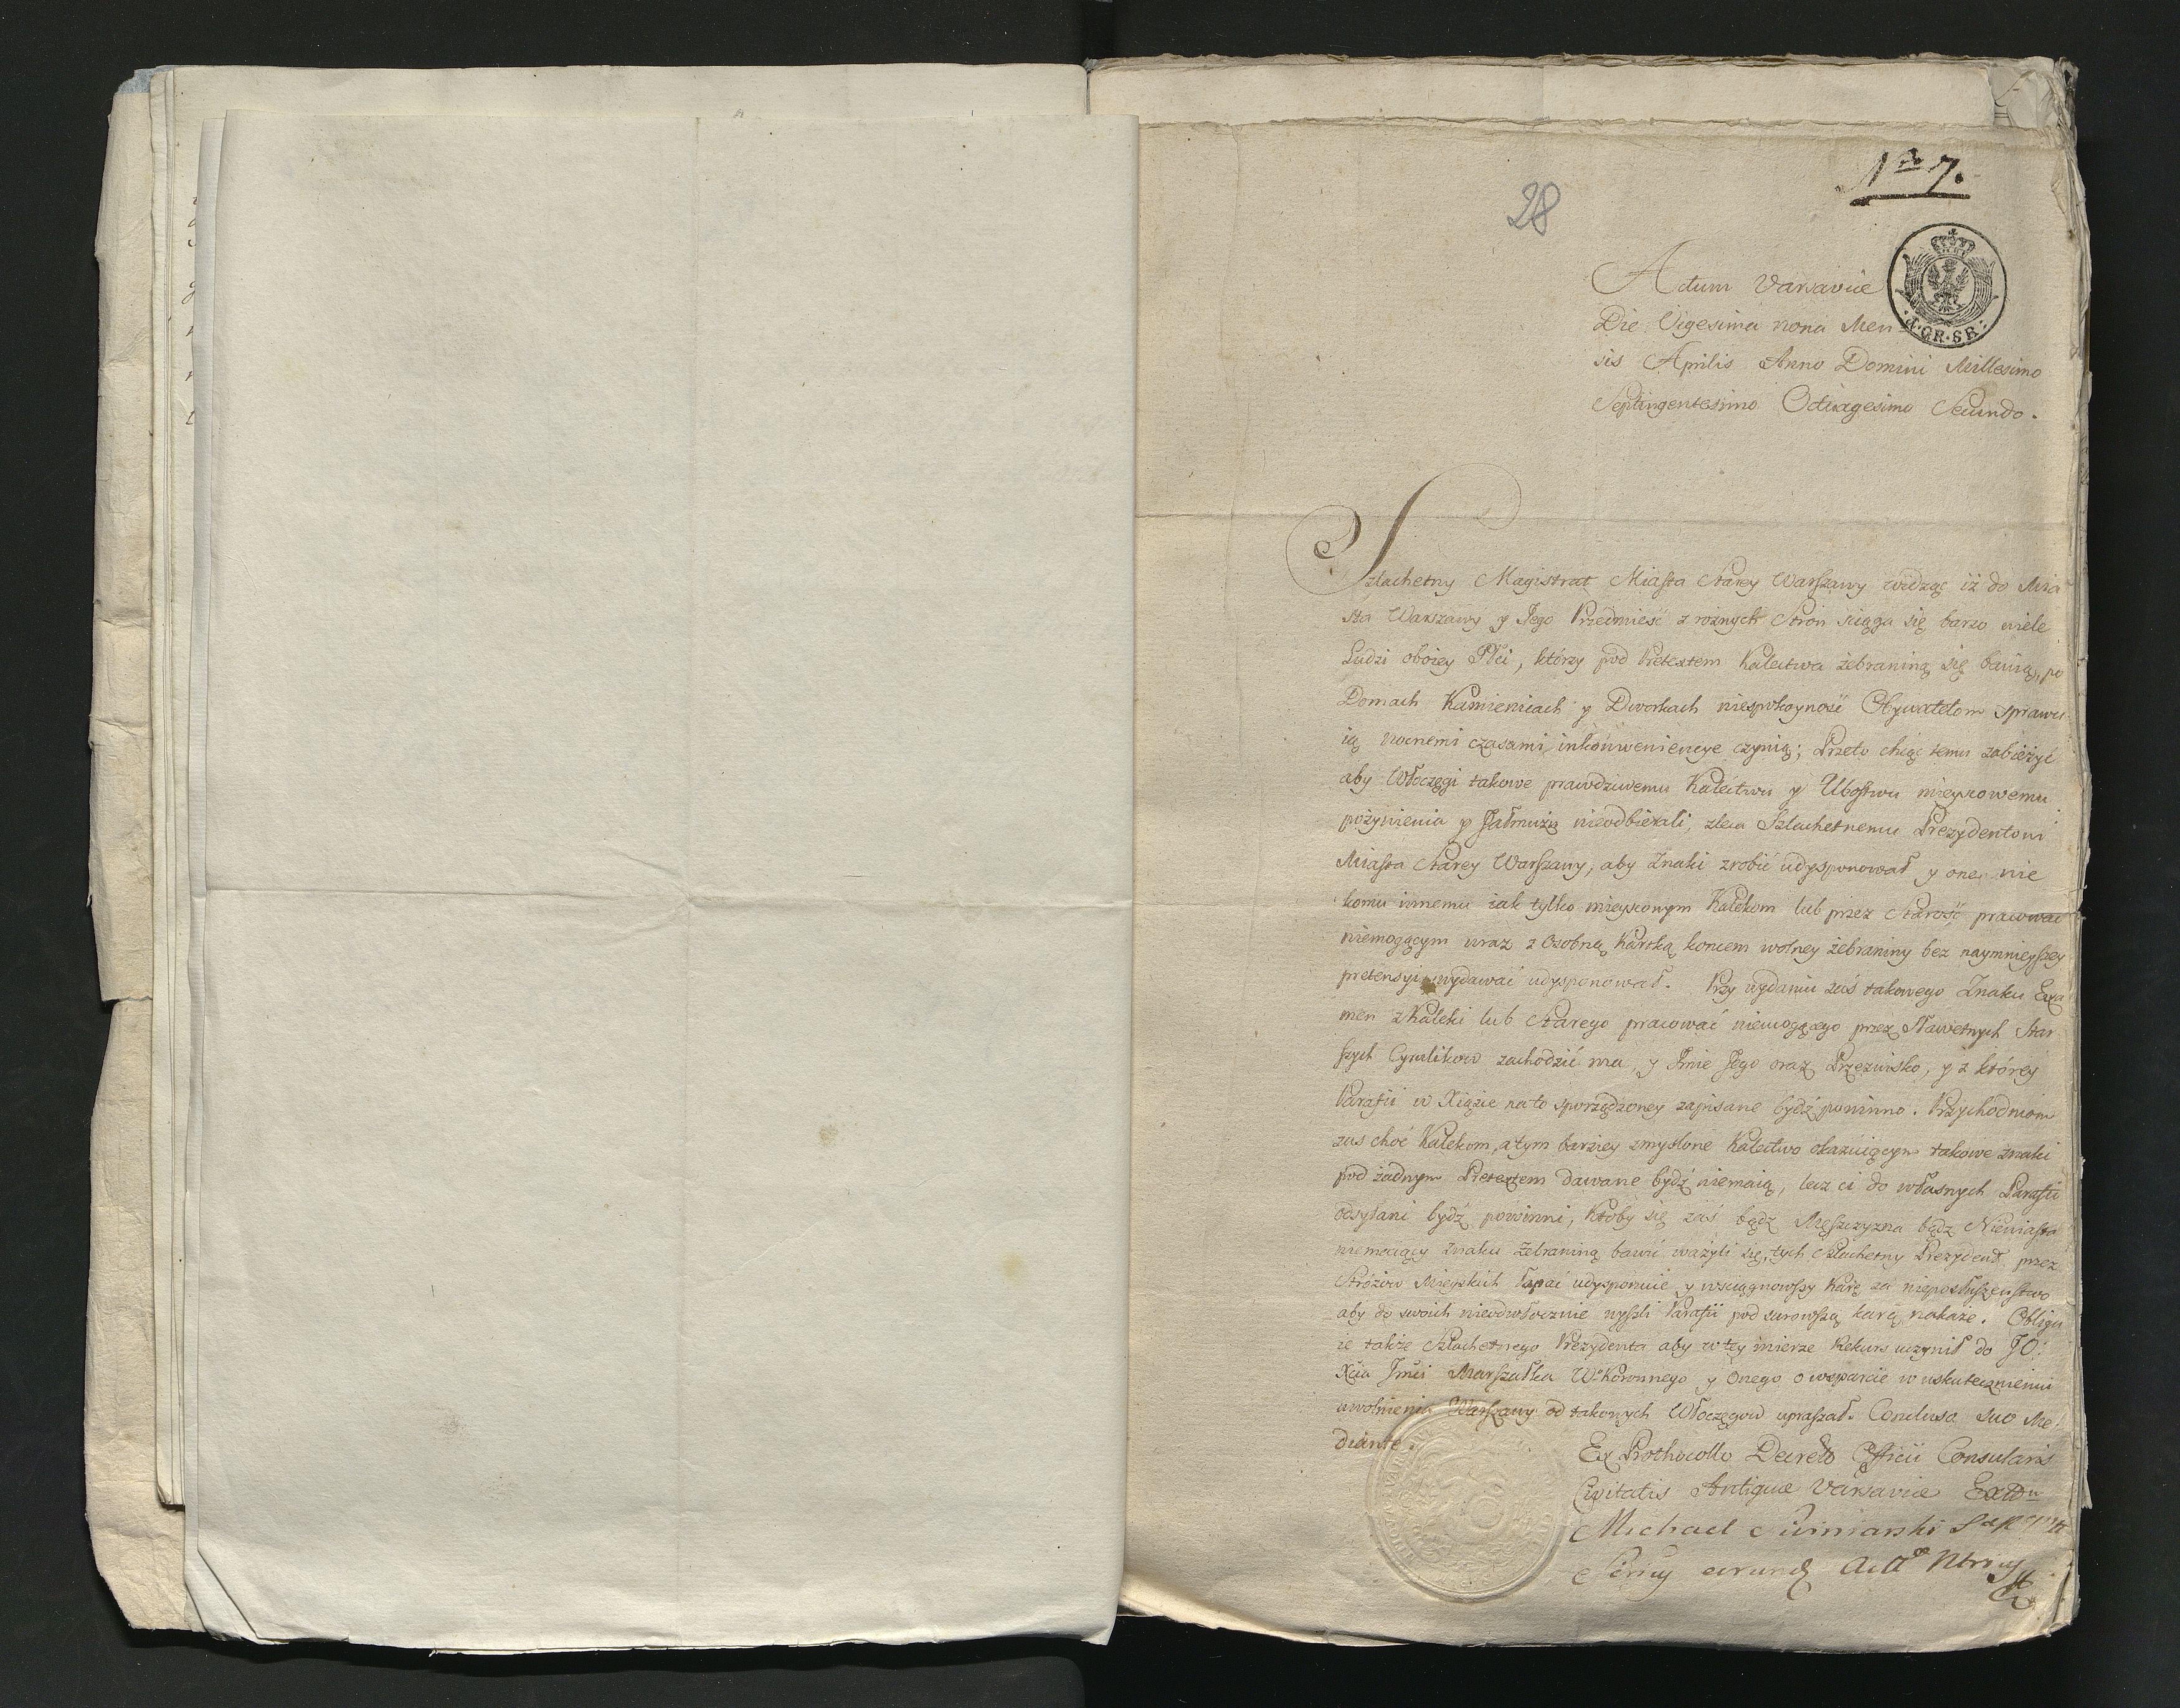 Nro 7.
28
Actum Varsaviæ
Die Vigesima nona Men-
4.GR.SR.
sis Aprilis Anno Domini Millesimo
Septingentesimo Octuagesimo Secundo.
Szlachetny Magistrat Miasta Starey Warszawy widząc iż do Mia
sta Warszawy y Jego Przedmieść z rożnych Stron sciąga się barzo wiele
Ludzi oboiey Płci, którzy pod Pretextem Kalectwa żebraniną się bawią, po
Domach Kamienicach y Dworkach niespokoyność Obywatelom sprawu
ią nocnemi czasami, inkonweniencye czynią; Przeto chcąc temu zabieżyć
aby Włoczęgi takowe prawdziwemu Kalectwu y Ubostwu mieyscowemu
pożywienia y Jałmużny nieodbierali, zleca Szlachetnemu Prezydentowi
Miasta Starey Warszawy, aby Znaki zrobić udysponował y one nie
komu innemu iak tylko mieyscowym Kalekom lub przez Starość pracować
niemogącym wraz z Osobną Kartką koncem wolney żebraniny bez naymnieyszey
pretensyi wydawać udysponował. Przy wydaniu zaś takowego Znaku Exa
men z Kaleki lub Starego pracować niemogącego przez Sławetnych Star
szych Cyrulikow zachodzić ma, y Imie Jego oraz Przezwisko, y z którey
Parafii w Xiązce na to sporządzoney zapisane bydź powinno. Przychodniom
zas choć Kalekom, a tym barziey zmyślone Kalectwo okazuiącym takowe znaki
pod żadnym Pretextem dawane bydź niemaią, lecz ci do własnych Parafii
odsyłani bydź powinni, Ktoby się zaś bądz Męszczyzna bądz Niewiasta
niemaiący Znaku Żebraniną bawić ważyli się, tych Szlachetny Prezydent przez
Stróżow Mieyskich łapać udysponuie y wsciągnowszy Karę za nieposłuszeństwo
aby do swoich nieodwłocznie wyszli Parafii pod surowszą karą nakaże. Obligu
ie także Szlachetnego Prezydenta aby w tey mierze Rekurs uczynił do JO:
Xcia Jmci Marszałka W. Koronnego y Onego o wsparcie w uskutecznieniu
uwolnienia Warszawy od takowych Włoczęgow upraszał. Conclusa suo Me
diante.
Ex Prothocollo Decreto Officii Consularis
Civitatis Antiquæ Varsaviæ
Michael